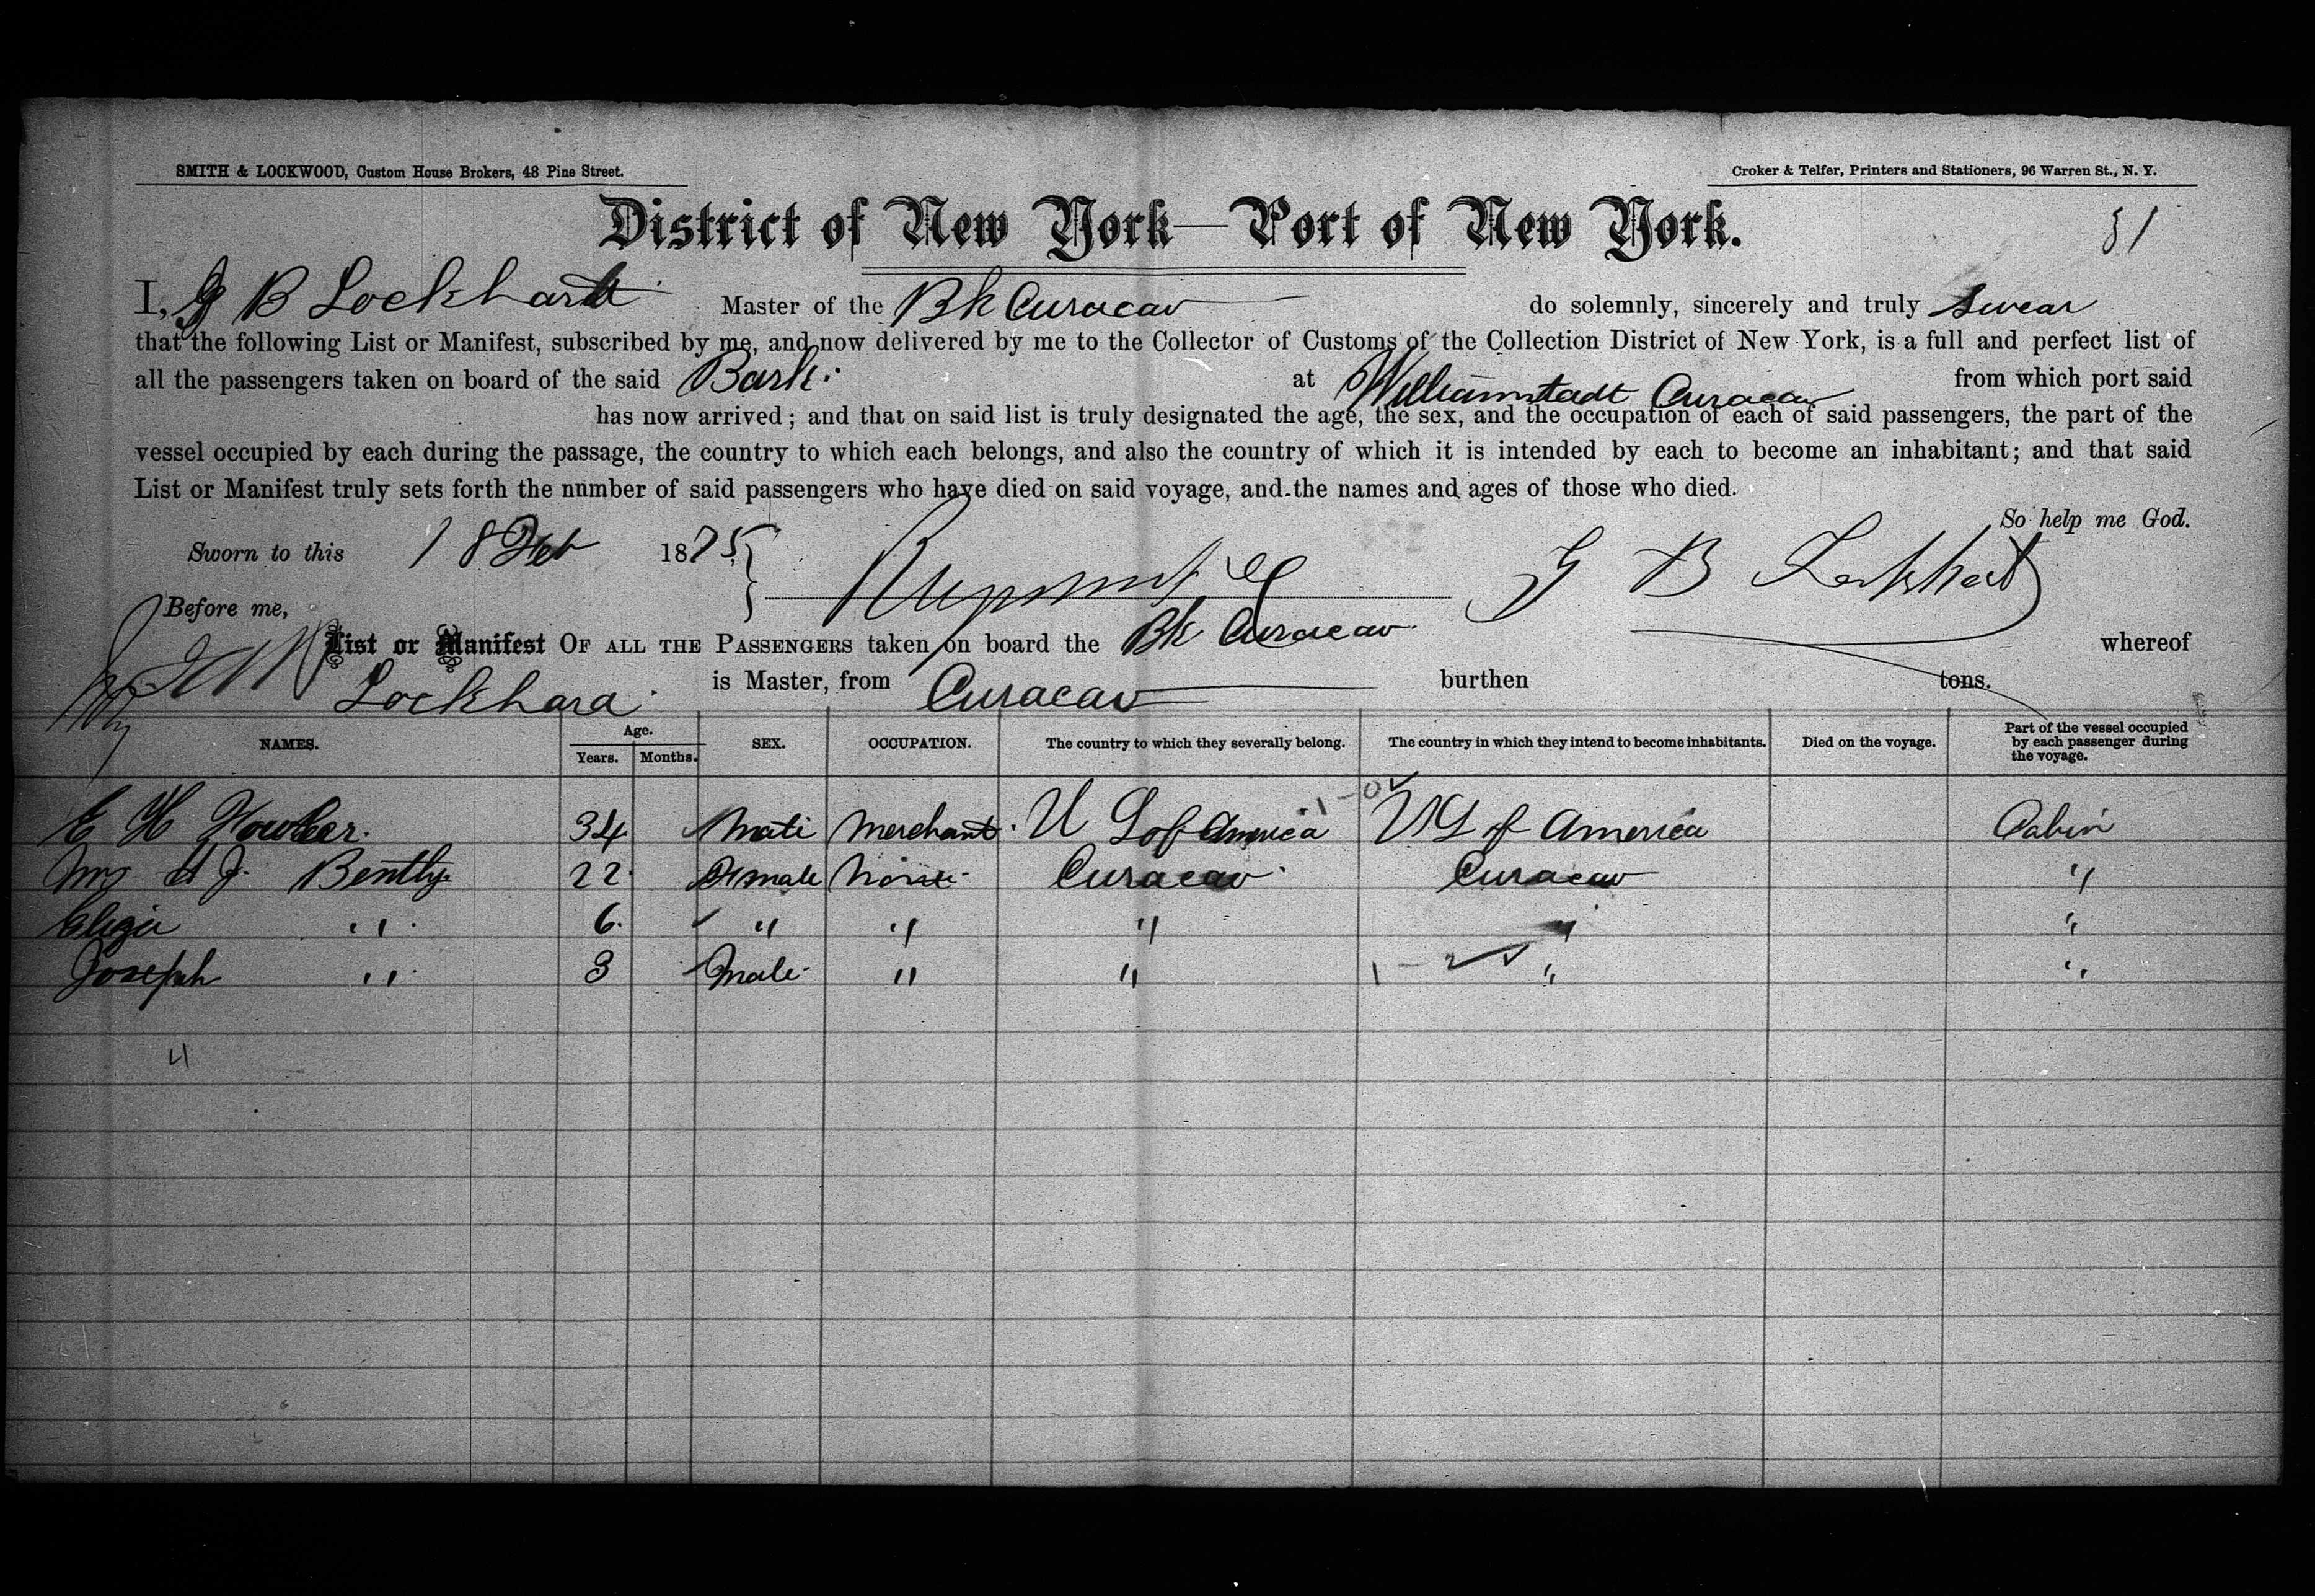 SMITH & LOCKWOOD, Custom House Brokers, 48 Pine Street.
Croker & Telfer, Printers and Stationers, 96 Warren St., N. Y.
District of New York—Port of New York.
81
I, G B Lockhart Master of the Bk Curacao do solemnly, sincerely and truly swear
that the following List or Manifest, subscribed by me, and now delivered by me to the Collector of Customs of the Collection District of New York, is a full and perfect list of
all the passengers taken on board of the said Bark at Williamstadt Curacao from which port said
has now arrived; and that on said list is truly designated the age, the sex, and the occupation of each of said passengers, the part of the
vessel occupied by each during the passage, the country to which each belongs, and also the country of which it is intended by each to become an inhabitant; and that said
List or Manifest truly sets forth the number of said passengers who have died on said voyage, and the names and ages of those who died.
So help me God.
Sworn to this 18 Feb 1875 G B Lockhart
Before me,
List or Manifest OF ALL THE PASSENGERS taken on board the Bk Curacao whereof
Lockhard is Master, from Curacao burthen tons.
NAMES. Age. Years. Months. SEX. OCCUPATION. The country to which they severally belong. The country in which they intend to become inhabitants. Died on the voyage. Part of the vessel occupied by each passenger during the voyage.
E H 34 Male Merchant U S of America U S of America Cabin
Mrs H J. Bently 22 Female None Curacao Curacao "
Eliza " 6 " " " " "
Joseph " 3 Male " " " "
1-2
4